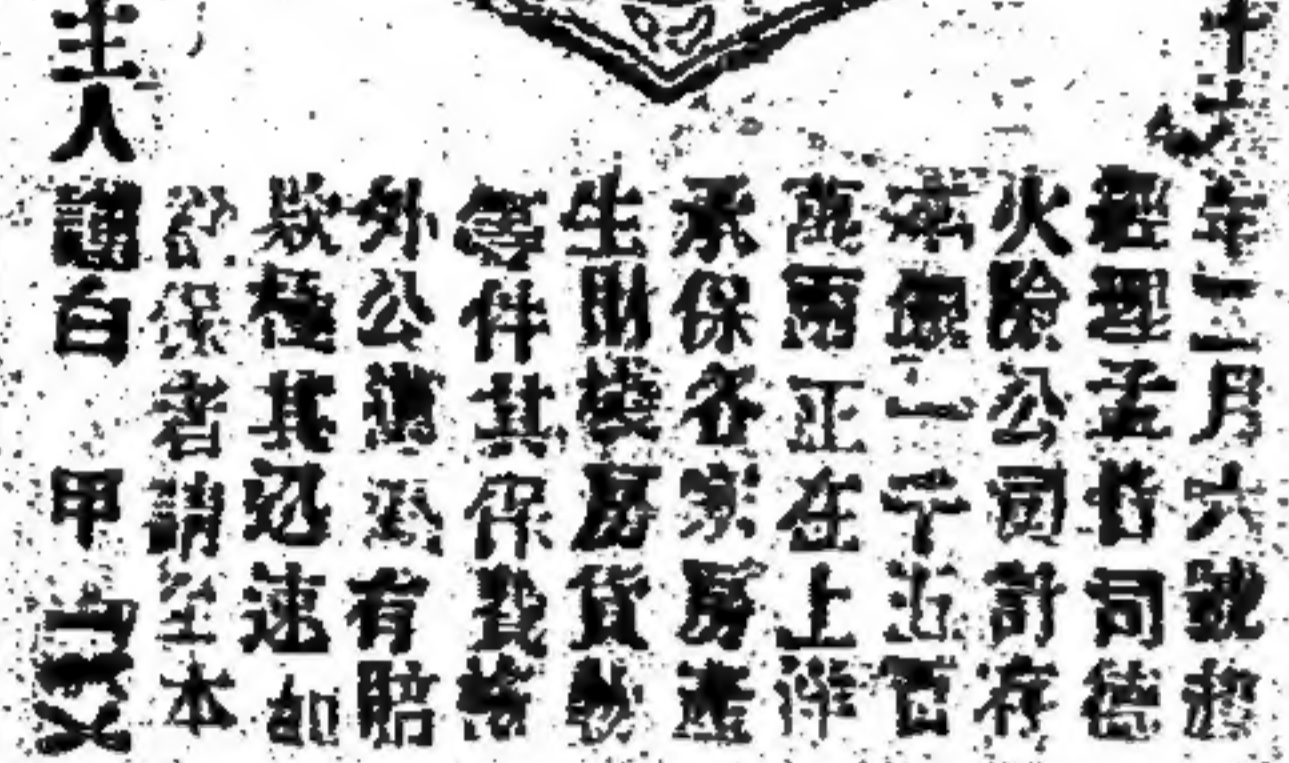 年二月六號
經理孟咭司德
火險公司計存
本銀一千五百
萬兩正在上洋
承保各家房產
生財棧房貨物
等件其保費格
外公道所有賠
款極其迅速如
保者請至本
主人謹白　甲